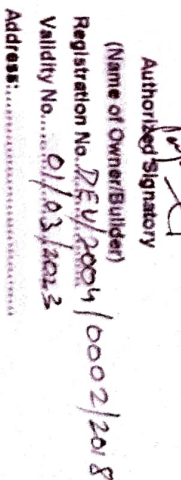 Authorized Signatory
(Name of Owner/Builder)
Registration No. DEV/2004/0002/2018
Validity No.... 01/03/2023
Address:................